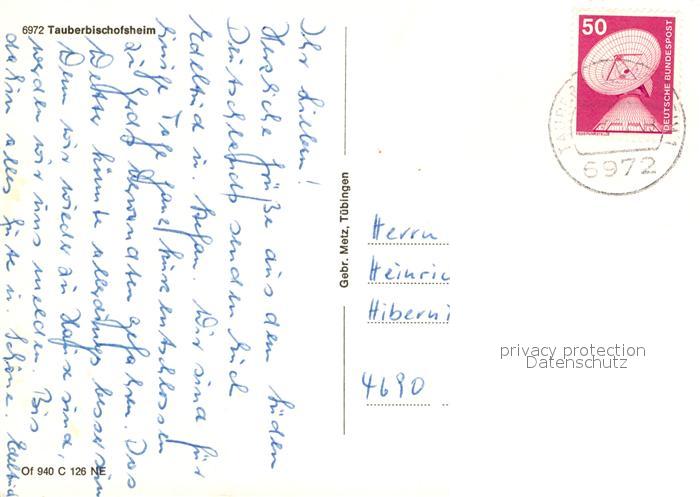 6972 Tauberbischofsheim
Ihr Lieben!
Herzliche Grüße aus dem Süden
Deutschlands senden Euch
Edeltrud u. Stefan. Wir sind für
einige Tage ganz kurz entschlossen
zu Verwandten gefahren. Das
Wetter könnte allerdings besser sein
Wenn wir wieder zu Hause sind,
werden wir uns melden. Bis
dahin alles Gute u. Schöne.
Of 940 C 126 NE
Gebr. Metz, Tübingen
50
DEUTSCHE BUNDESPOST
6972
Herrn
Heinric
Hiberni
4690
privacy protection
Datenschutz